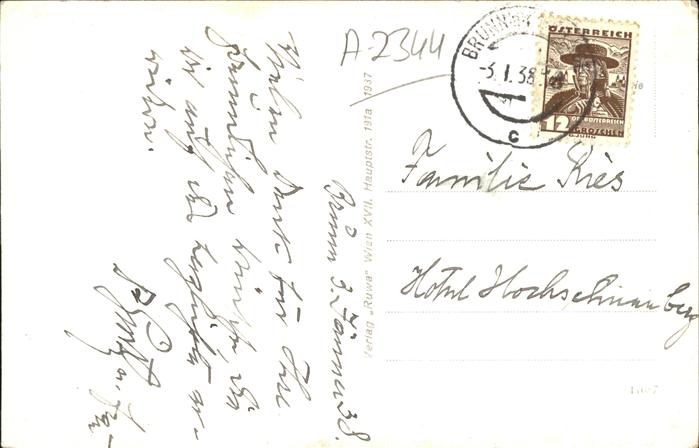 A-2344
BRUNN
-3.I.38
C
ÖSTERREICH
12
GROSCHEN
Familie Ries
Hotel Hochschneeberg
Verlag „Ruwa" Wien XVII. Hauptstr. 191a 1937
Brünn 3. Jänner 38.
Vielen Dank für Ihre
freundlichen Wünsche die
wir auf das herzlichste er-
widern.